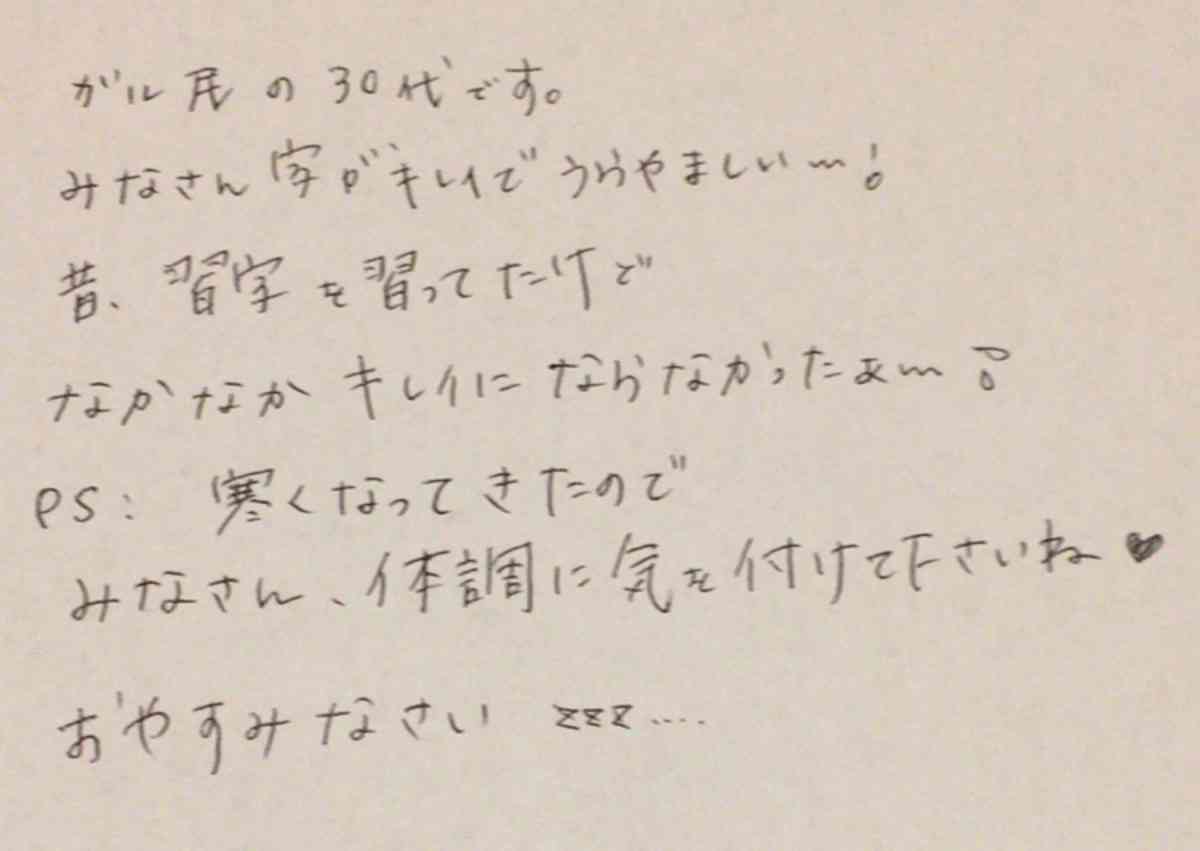 ガル民の30代です。
みなさん字がキレイでうらやましい〜!
昔、習字を習ってたけど
なかなかキレイにならなかったぁ〜!
PS: 寒くなってきたので
みなさん、体調に気を付けて下さいね♥
おやすみなさい zzz....